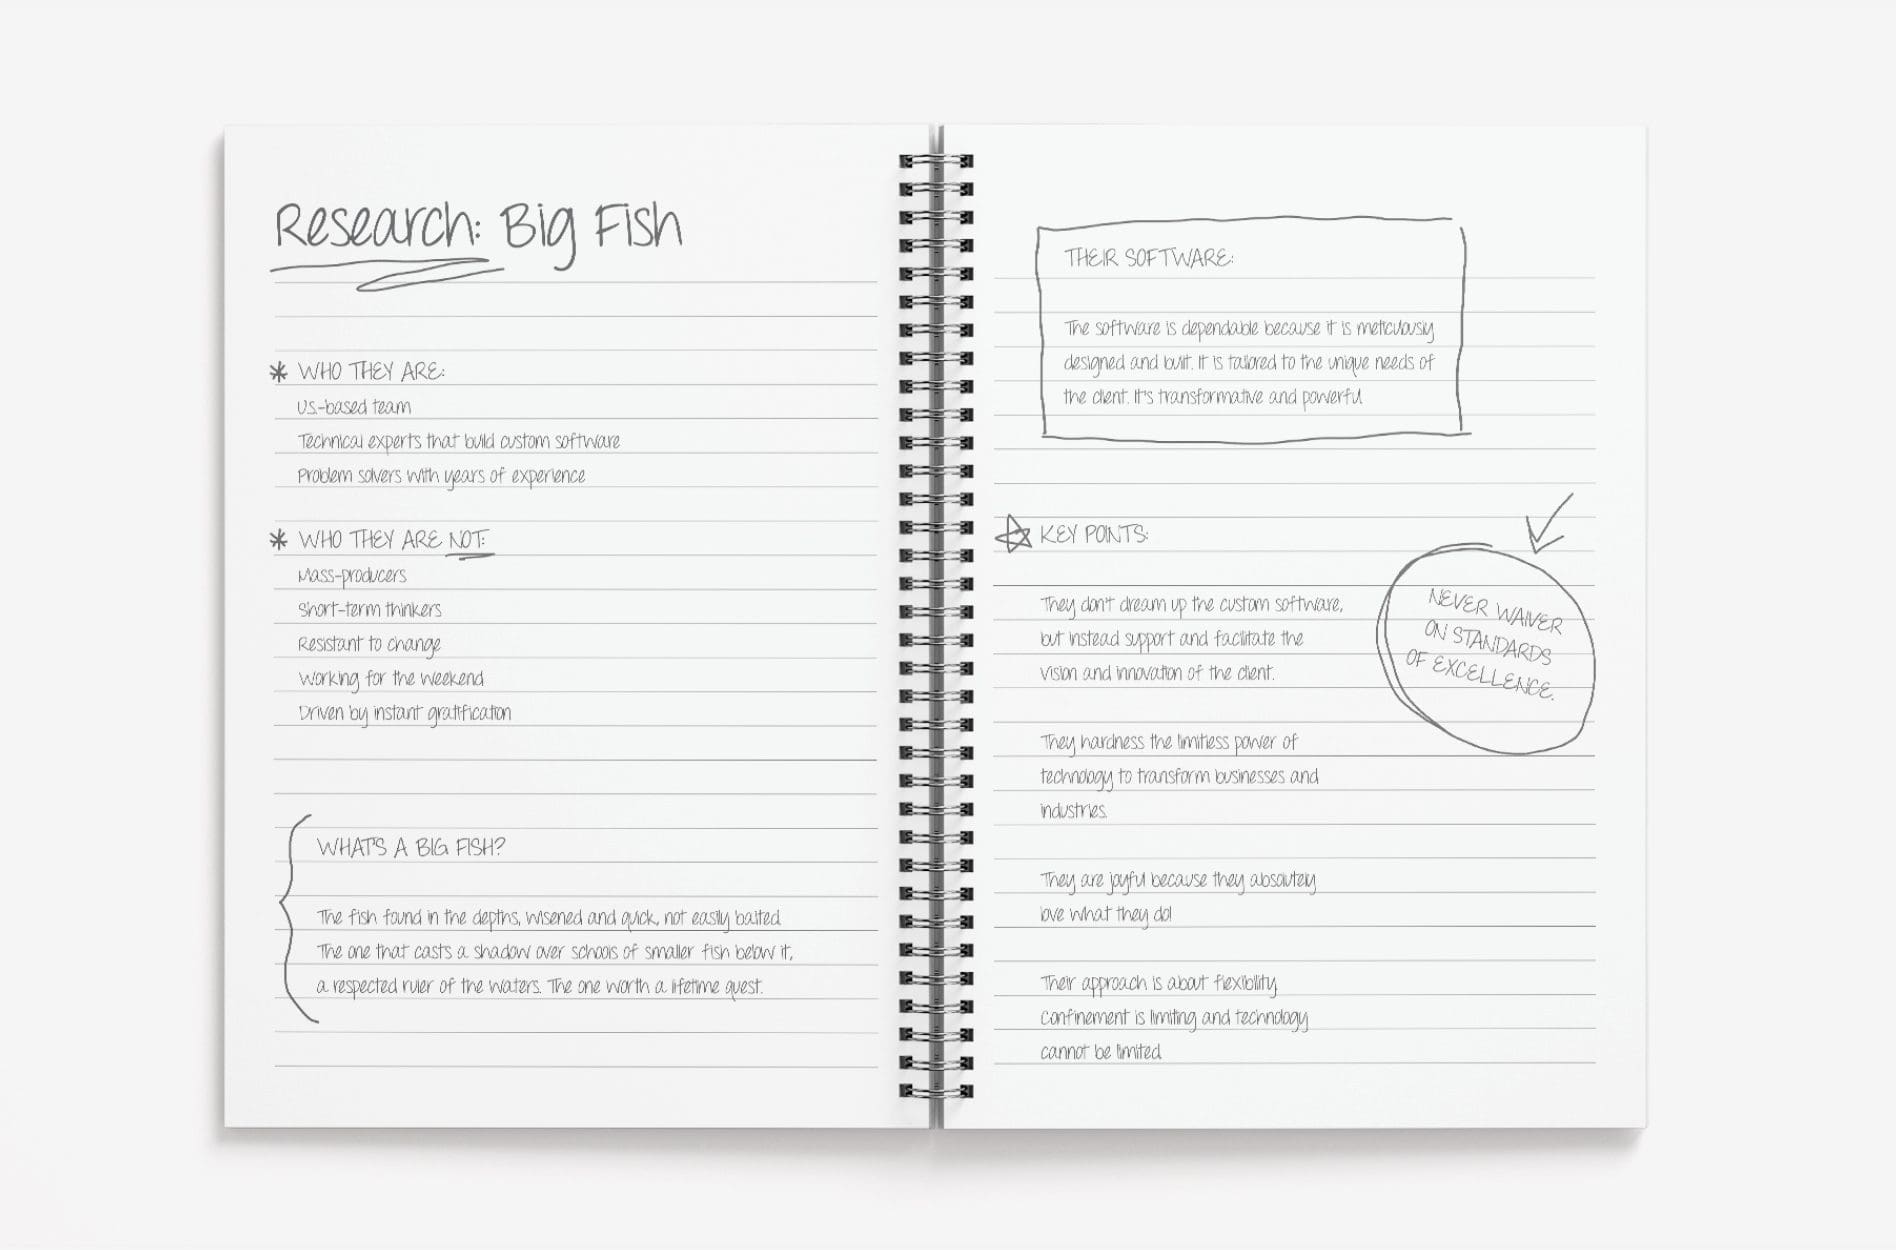 Research: Big Fish
* WHO THEY ARE:
U.S.-based team
Technical experts that build custom software
Problem solvers with years of experience
* WHO THEY ARE NOT:
Mass-producers
Short-term thinkers
Resistant to change
Working for the weekend
Driven by instant gratification
WHAT'S A BIG FISH?
The fish found in the depths, wisened and quick, not easily baited.
The one that casts a shadow over schools of smaller fish below it,
a respected ruler of the waters. The one worth a lifetime quest.
THEIR SOFTWARE:
The software is dependable because it is meticulously
designed and built. It is tailored to the unique needs of
the client. It's transformative and powerful.
KEY POINTS:
They don't dream up the custom software,
but instead support and facilitate the
vision and innovation of the client.
NEVER WAIVER
ON STANDARDS
OF EXCELLENCE.
They hardness the limitless power of
technology to transform businesses and
industries.
They are joyful because they absolutely
love what they do!
Their approach is about flexibility.
Confinement is limiting and technology
cannot be limited.